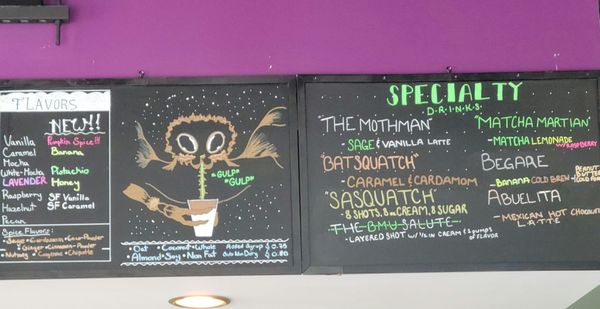 FLAVORS
NEW!!
Vanilla
Caramel
Mocha
White-Mocha
LAVENDER
Raspberry
Hazelnut
Pecan
Pumpkin Spice!!!
Banana
Pistachio
Honey
SF Vanilla
SF Caramel
Spice Flavors:
Sage • Cardamom •
Ginger • Cinnamon-Powder
Nutmeg • Cayenne • Chipotle
*GULP*
*GULP*
Oat • Coconut • Whole
Almond • Soy • Non Fat
Added Syrup $ 0.75
Sub Non Dairy $ 0.80
SPECIALTY
D•R•I•N•K•S
"THE MOTHMAN"
SAGE & VANILLA LATTE
"BATSQUATCH"
CARAMEL & CARDAMOM
"SASQUATCH"
8 SHOTS, 8oz CREAM, 8 SUGAR
THE BMU SALUTE
- LAYERED SHOT w/ ½ in CREAM & 2 pumps
OF FLAVOR
"MATCHA MARTIAN"
- MATCHA LEMONADE
w/ RASPBERRY
BEGARE
- BANANA COLD BREW
PEANUT
BUTTER
COLD FOAM
ABUELITA
- MEXICAN HOT CHOCOLATE
LATTE